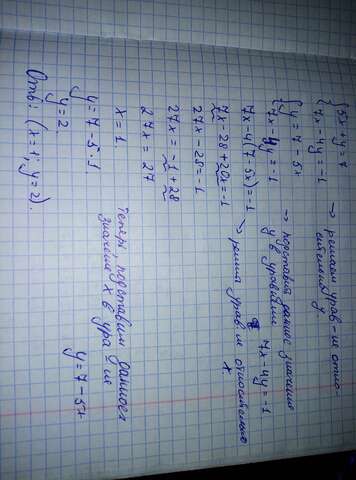 {5x + y = 7
{7x - 4y = -1 → решаем урав-ие отно-
сительно y
{y = 7 - 5x
{7x - 4y = -1 → подставим данное значение
y в уравнение 7x - 4y = -1
7x - 4(7 - 5x) = -1
7x - 28 + 20x = -1 → решим урав-ие относительно
x
27x - 28 = -1
27x = -1 + 28
27x = 27
x = 1 Теперь, подставим данное
значение x в урав-ие
y = 7 - 5x
y = 7 - 5·1
y = 2.
Отв: (x = 1; y = 2).